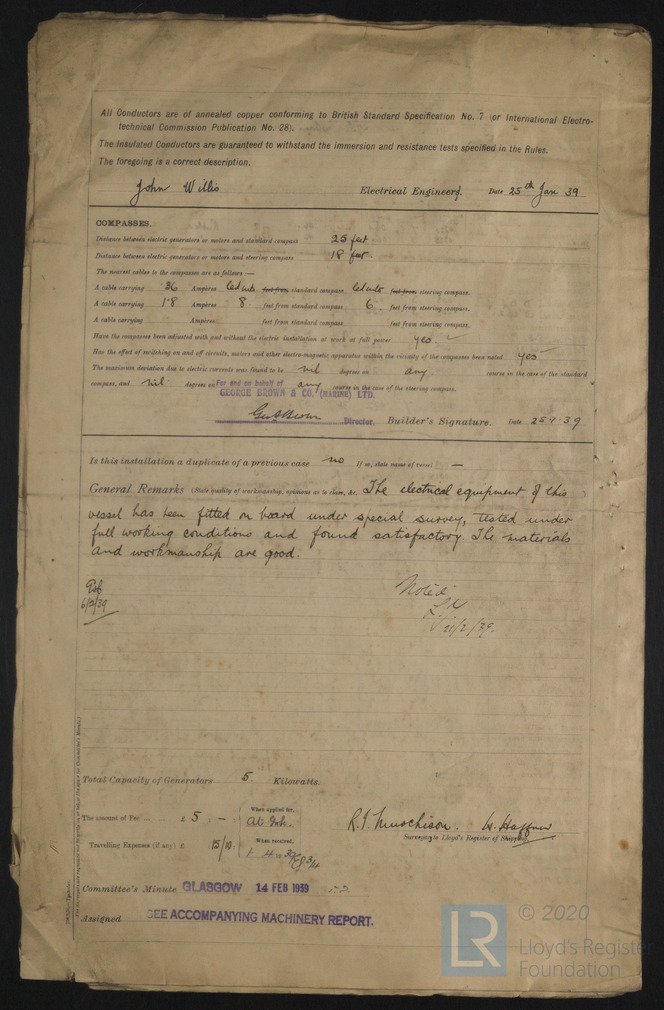 All Conductors are of annealed copper conforming to British Standard Specification No. 7 (or International Electro-
technical Commission Publication No. 28).
The Insulated Conductors are guaranteed to withstand the immersion and resistance tests specified in the Rules.
The foregoing is a correct description.
John Willis Electrical Engineers. Date 25th Jan 39
COMPASSES.
Distance between electric generators or motors and standard compass 25 feet
Distance between electric generators or motors and steering compass 18 feet
The nearest cables to the compasses are as follows:—
A cable carrying .36 Amperes led into feet from standard compass led into feet from steering compass.
A cable carrying 1.8 Amperes 8 feet from standard compass 6 feet from steering compass.
A cable carrying Amperes feet from standard compass feet from steering compass.
Have the compasses been adjusted with and without the electric installation at work at full power yes
Has the effect of switching on and off circuits, motors and other electro-magnetic apparatus within the vicinity of the compasses been noted yes
The maximum deviation due to electric currents was found to be nil degrees on any course in the case of the standard
compass, and nil degrees on any course in the case of the steering compass.
For and on behalf of
GEORGE BROWN & CO. (MARINE) LTD.
Geo Brown Director. Builder's Signature. Date 25.1.39
Is this installation a duplicate of a previous case no If so, state name of vessel —
General Remarks (State quality of workmanship, opinions as to class, &c. The electrical equipment of this
vessel has been fitted on board under special survey, tested under
full working conditions and found satisfactory. The materials
and workmanship are good.
6/2/39
Noted
21/2/39.
Total Capacity of Generators 5 Kilowatts.
The amount of Fee ... £ 5 : – : When applied for,
Travelling Expenses (if any) £ 15/10 When received,
R. J. Murchison.
Surveyor to Lloyd's Register of Shipping.
Committee's Minute GLASGOW 14 FEB 1939
Assigned SEE ACCOMPANYING MACHINERY REPORT.
LR
© 2020
Lloyd's Register
Foundation